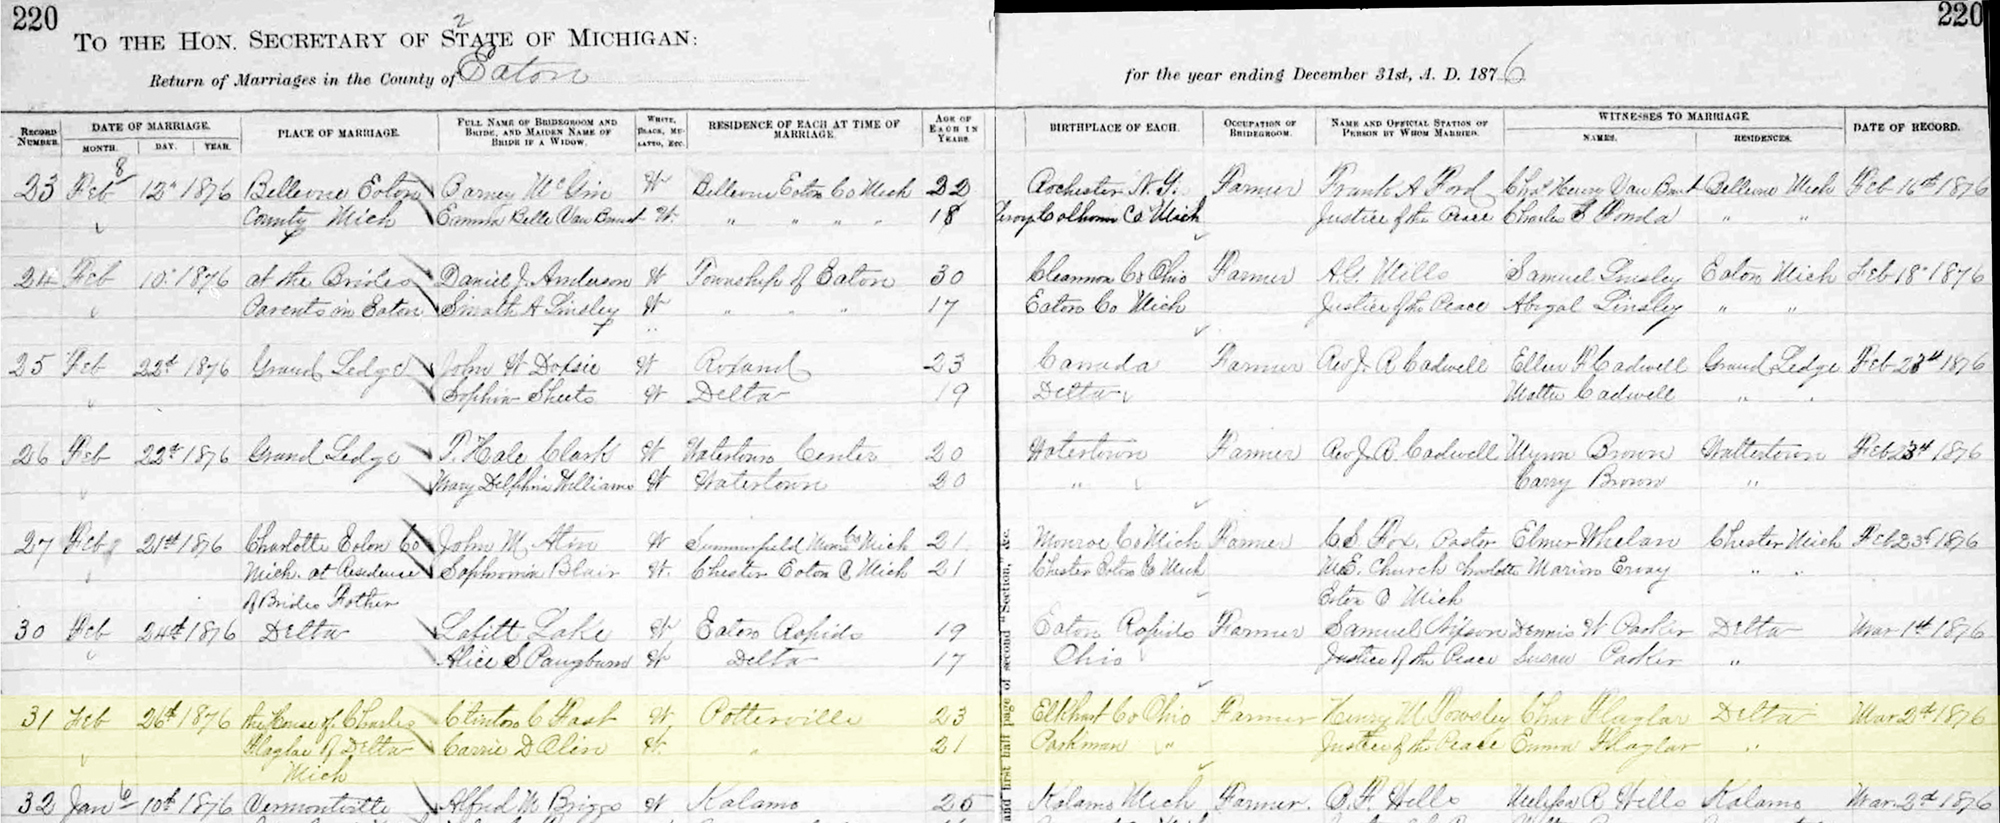 220
220
2
TO THE HON. SECRETARY OF STATE OF MICHIGAN:
Return of Marriages in the County of Eaton for the year ending December 31st, A. D. 1876
RECORD NUMBER. DATE OF MARRIAGE. MONTH. DAY. YEAR. PLACE OF MARRIAGE. FULL NAME OF BRIDEGROOM AND BRIDE, AND MAIDEN NAME OF BRIDE IF A WIDOW. WHITE, BLACK, MULATTO, ETC. RESIDENCE OF EACH AT TIME OF MARRIAGE. AGE OF EACH IN YEARS. BIRTHPLACE OF EACH. OCCUPATION OF BRIDEGROOM. NAME AND OFFICIAL STATION OF PERSON BY WHOM MARRIED. WITNESSES TO MARRIAGE. NAMES. RESIDENCES. DATE OF RECORD.
8
23 Feb 12" 1876 Bellevue Eaton Barney McGin W Bellevue Eaton Co Mich 22 Rochester N.Y. Farmer Frank A Ford Chas Henry Van Bellevue Mich Feb 16th 1876
" County Mich Emma Belle Van W. " " " " 18 Leroy Colhoun Co Mich Justice of the Peace Charles Fonda " "
24 Feb 10" 1876 at the Brides Daniel J. Anderson W Township of Eaton 30 Co Ohio Farmer A.G. Mills Samuel Linsley Eaton Mich Feb 18" 1876
" Parents in Eaton A Linsley W " " " 17 Eaton Co Mich Justice of the Peace Abigal Linsley " "
25 Feb 22d 1876 Grand Ledge John W Doxsie W Roxand 23 Canada Farmer Rev J. R Cadwell Ellen F Cadwell Grand Ledge Feb 23d 1876
" Sophia Sheets W Delta 19 Delta Mattie Cadwell " "
26 Feb 22d 1876 Grand Ledge T. Hale Clark W Watertown Center 20 Watertown Farmer Rev J. R Cadwell Myron Brown Watertown Feb 23d 1876
" Mary Delphine Williams W Watertown 20 " " Carry Brown "
27 Feb 21st 1876 Charlotte Eaton Co John M W Summerfield Monroe Co Mich 21 Monroe Co Mich Farmer C S Fox, Pastor Elmer Whelan Chester Mich Feb 23d 1876
" Mich. at Residence Sophronia Blair W. Chester Eaton Co Mich 21 Chester Eaton Co Mich M.E. Church Charlotte Marion Ervay " "
of Brides Father Eaton Co Mich
30 Feb 24th 1876 Delta Lafitt Lake W Eaton Rapids 19 Eaton Rapids Farmer Samuel Nixson Dennis W Parker Delta Mar 1st 1876
" Alice S Pangburn W Delta 17 Ohio Justice of the Peace Susan Parker "
31 Feb 26th 1876 the House of Charles Clinton C Fast W Potterville 23 Elkhart Co Ohio Farmer Henry M Chas Flaglar Delta Mar 2d 1876
" Flaglar of Delta Carrie D Olin W. " 21 Parkman " Justice of the Peace Emma Flaglar "
Mich
6
32 Jan 10th 1876 Vermontville Alfred M Briggs W Kalamo 25 Kalamo Mich Farmer. Hells Melissa R Hells Kalamo Mar. 2d 1876
and first half page of second "Section," &c.